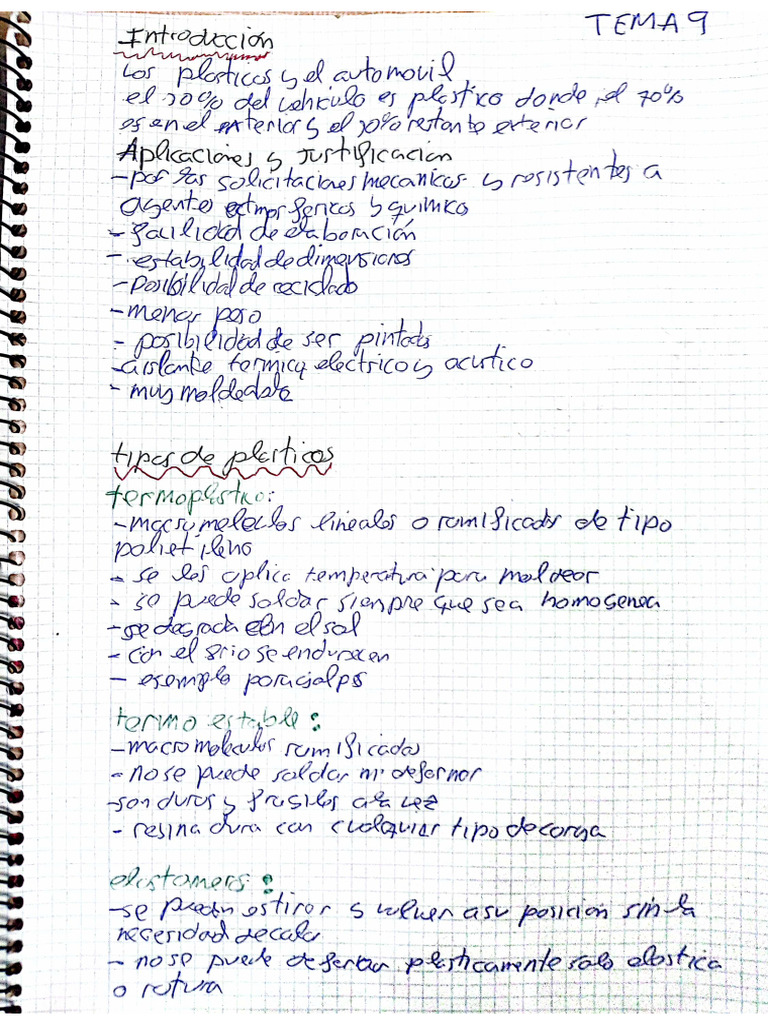 TEMA 9
Introducción
Los plasticos y el automovil
el 20% del vehiculo es plastico donde el 70%
es en el interior y el 30% restante exterior
Aplicaciones y Justificacion
- por las solicitaciones mecanicas y resistentes a
agentes atmosfericos y quimico
- facilidad de elaboración
- estabilidad de dimensiones
- posibilidad de reciclado
- menor peso
- posibilidad de ser pintado
- aislante termica electrico y acustico
- muy moldeable
tipos de plasticos
termoplastico:
- macro moleculas lineales o ramificadas de tipo
polietileno
- se les aplica temperatura para moldear
- se puede soldar siempre que sea homogenea
- se degrada con el sol
- con el frio se endurecen
- esemplo paragolpes
termo estable:
- macro moleculas ramificadas
- no se puede soldar ni deformar
- son duros y fragiles a la vez
- resina dura con cualquier tipo de carga
elastomers:
- se pueden estirar y volver a su posicion sin la
necesidad de calor
- no se puede deformar plasticamente solo elastica
o rotura